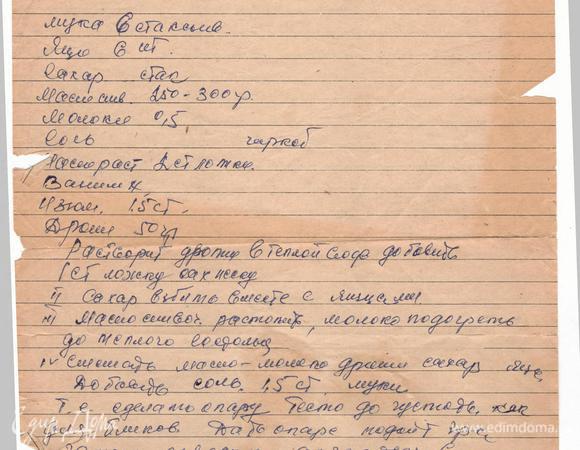 мука 6 стаканив.
Яцо 6 шт.
Сахар стак
Масло слив. 250-300 гр.
Молоко 0,5
Соль
Масло раст 2 ст ложки.
Ванили
Изюм. 1,5 ст.
Дрожи 50 гр
Растворит дрожи в теплой добавить
1 ст ложку
II Сахар взбить вместе с яицами.
III Масло сливоч. растопить, молоко подогреть
до теплого
IV Смешать масло-молоко дрожи сахар
Добавить соль. 1,5 ст. муки
Т.е. сделать опару Тесто до густоты, как
для бликов. Дать опаре
www.edimdoma.ru